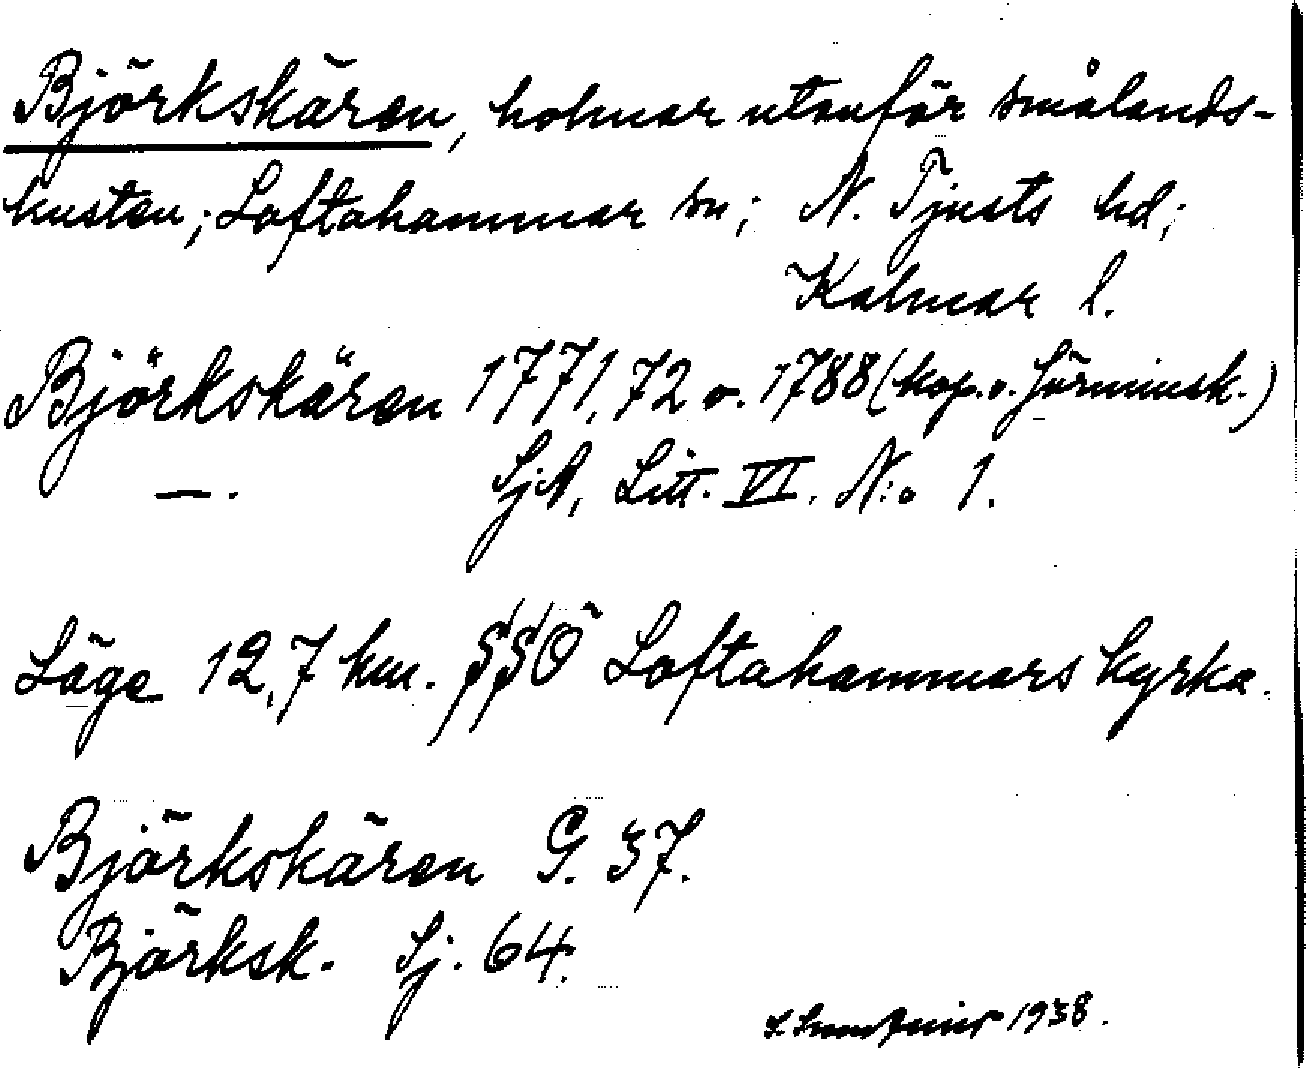 Björkskären, holmar utanför smålands-
kusten; Loftahammar sn; N. Tjusts hd;
Kalmar l.
Björkskären 1771, 72 o. 1788 (kop. o.
— . SjA, Litt. VI. N:o 1.
Läge 12,7 km. SSÖ Loftahammars kyrka.
Björkskären G. 37.
Björksk. Sj. 64.
1938.